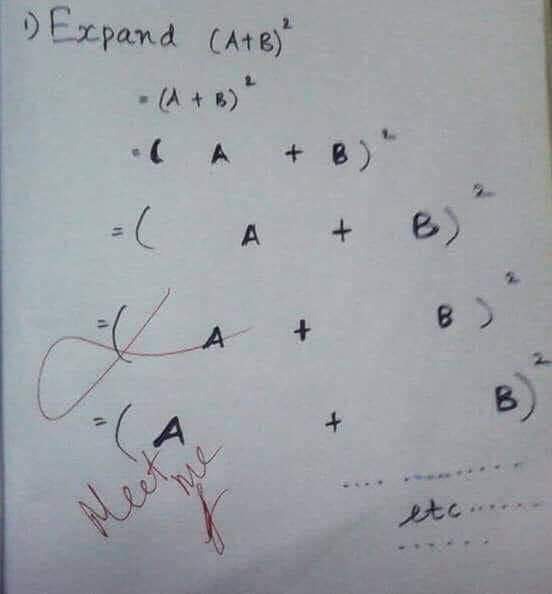 1) Expand (A+B)²
= (A + B)²
= ( A + B)²
= ( A + B)²
= ( A + B)²
= ( A + B)²
Meet me
........
etc ......
.......